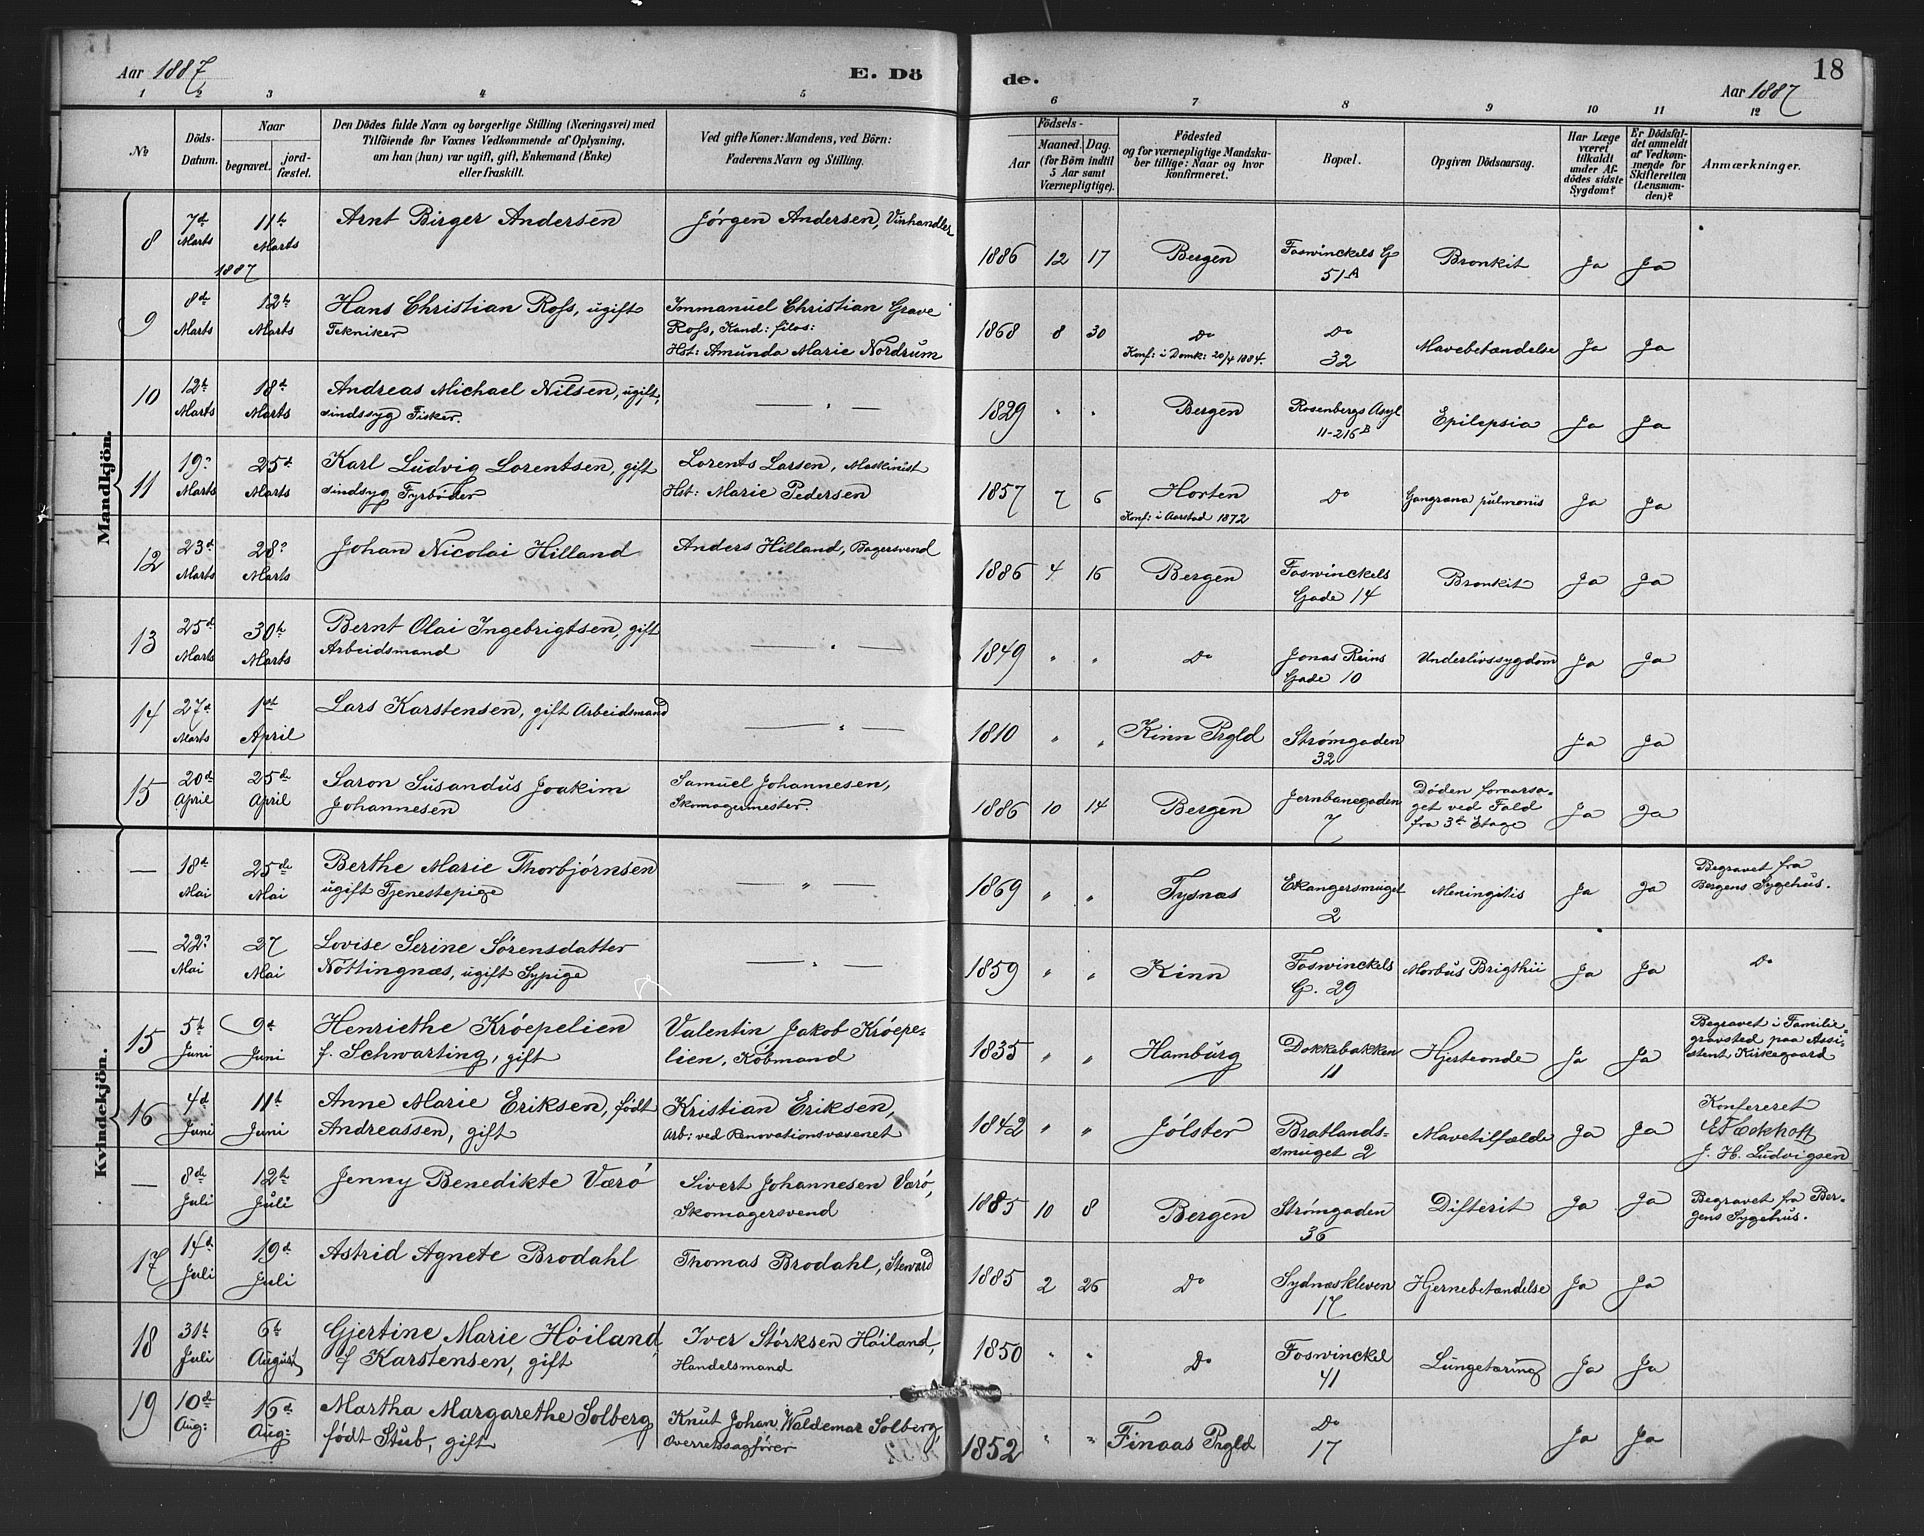 Aar 1887
E. Dö
de.
18
Aar 1887
1 2 3 4 5 6 7 8 9 10 11 12
No
Döds-
Datum.
Naar
begravet.
jord-
fæstet.
Den Dödes fulde Navn og borgerlige Stilling (Næringsvei) med
Tilföiende for Voxnes Vedkommende af Oplysning,
om han (hun) var ugift, gift, Enkemand (Enke)
eller fraskilt.
Ved gifte Koner: Mandens, ved Börn:
Faderens Navn og Stilling.
Födsels-
Aar
Maaned. Dag.
(for Börn indtil
5 Aar samt
Værnepligtige).
Födested
og for værnepligtige Mandska-
ber tillige: Naar og hvor
konfirmeret.
Bopæl.
Opgiven Dödsaarsag.
Har Læge
været
tilkaldt
under Af-
dödes sidste
Sygdom?
Er Dödsfal-
det anmeldt
af Vedkom-
mende for
Skifteretten
(Lensman-
den)?
Anmærkninger.
Mandkjön.
8 7d Marts 11te Marts Arnt Birger Andersen Jörgen Andersen, Vinhandler 1886 12 17 Bergen Foswinckels G 51A Bronkit Ja Ja
1887
9 8d Marts 12te Marts Hans Christian Ross, ugift Immanuel Christian Grave
Tekniker Ross, Kand: filos: 1868 8 30 Do Do Mavebetændelse Ja Ja
Hst: Amunda Marie Nordrum Konf: i Domk: 20/4 1884. 32
10 12te Marts 18d Marts Andreas Michael Nilsen, ugift, — " — 1829 " " Bergen Rosenbergs Asyl Epilepsia Ja Ja
sindssyg Fisker. 11-216B
11 19? Marts 25d Marts Karl Ludvig Lorentsen, gift Lorents Larsen, Maskinist 1857 7 6 Horten Do Gangræna pulmoniis Ja Ja
sindsyg Fyrböder Hst: Marie Pedersen Konf: i Aarstad 1872
12 23d Marts 28? Marts Johan Nicolai Hilland Anders Hilland, Bagersvend 1886 4 16 Bergen Foswinckels Bronkit Ja Ja
Gade 14
13 25d Marts 30te Marts Bernt Olai Ingebrigtsen, gift — " — 1849 " " Do Jonas Reins Underlivssygdom Ja Ja
Arbeidsmand Gade 10
14 27d Marts 1ste April Lars Karstensen, gift Arbeidsmand — " — 1810 " " Kinn Prgld Strömgaden Ja Ja
32
15 20d April 25de April Saron Susandus Joakim Samuel Johannesen, 1886 10 14 Bergen Jernbanegaden Döden foraarsa- Ja Ja
Johannesen Skomagermester. 7 get ved Fald
fra 3de Etage
Kvindekjön.
— 18d Mai 25de Mai Berthe Marie Thorbjörnsen — " — 1869 " " Tysnæs Ekangersmuget Meningitis Ja Ja Begravet fra
ugift Tjenestepige 2 Bergens Sygehus.
— 22? Mai 27 Mai Lovise Serine Sörensdatter — " — 1859 " " Kinn Foswinckels Morbus Brigthii Ja Ja Do
Nottingnæs, ugift Sypige G. 29
15 5te Juni 9d Juni Henriethe Kröepelien Valentin Jakob Kröepe- 1835 " " Hamburg Dokkebakken Hjerteonde Ja Ja Begravet i Familie-
f. Schwarting, gift lien, Köbmand 11 gravsted paa Assi-
stent Kirkegaard
16 4d Juni 11te Juni Anne Marie Eriksen, födt Kristian Eriksen, 1842 " " Jölster Bratlands- Mavetilfælde Ja Ja Konfereret
Andreassen, gift Arb: ved Renovationsvæsenet smuget 2 Eckhoff
J. H. Ludvigsen
— 8de Juli 12te Juli Jenny Benedikte Værö Sivert Johannesen Værö, 1885 10 8 Bergen Strömgaden Difterit Ja Ja Begravet fra Ber-
Skomagersvend 36 gens Sygehus.
17 14d Juli 19d Juli Astrid Agnete Brodahl Thomas Brodahl, Steward 1885 2 26 Do Sydnæskleven Hjernebetændelse Ja Ja
17
18 31te Juli 6te August Gjertine Marie Höiland, Iver Störksen Höiland, 1850 " " Do Foswinckel Lungetæring Ja Ja
f Karstensen, gift Handelsmand 41
19 10de Aug: 16d Aug: Martha Margarethe Solberg Knut Johan Waldemar Solberg, 1852 " " Finaas Prgld Do Ja Ja
födt Stub, gift Overretssagförer 17